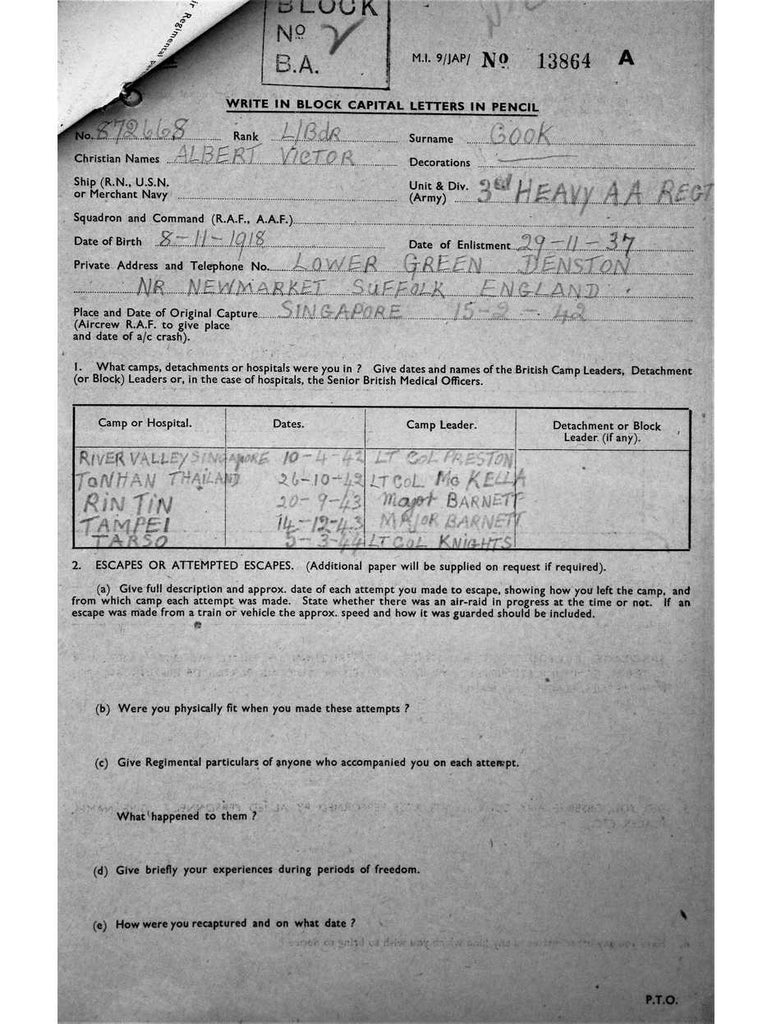 BLOCK
Nº 2
B.A.
M.I. 9/JAP/ Nº 13864 A
WRITE IN BLOCK CAPITAL LETTERS IN PENCIL
No. 872668 Rank L/BdR Surname COOK
Christian Names ALBERT VICTOR Decorations
Ship (R.N., U.S.N. or Merchant Navy
Unit & Div. (Army) 3rd HEAVY A A REGT
Squadron and Command (R.A.F., A.A.F.)
Date of Birth 8-11-1918 Date of Enlistment 29-11-37
Private Address and Telephone No. LOWER GREEN DENSTON
NR NEWMARKET SUFFOLK ENGLAND.
Place and Date of Original Capture SINGAPORE 15-2-42
(Aircrew R.A.F. to give place
and date of a/c crash).
1. What camps, detachments or hospitals were you in ? Give dates and names of the British Camp Leaders, Detachment
(or Block) Leaders or, in the case of hospitals, the Senior British Medical Officers.
Camp or Hospital. Dates. Camp Leader. Detachment or Block
Leader (if any).
RIVER VALLEY SINGAPORE 10-4-42 LT COL PRESTON
TONHAN THAILAND 26-10-42 LT COL Mc KELLA
RIN TIN 20-9-43 Major BARNETT
TAMPEI 14-12-43 MAJOR BARNETT
TARSO 5-3-44 LT COL KNIGHTS
2. ESCAPES OR ATTEMPTED ESCAPES. (Additional paper will be supplied on request if required).
(a) Give full description and approx. date of each attempt you made to escape, showing how you left the camp, and
from which camp each attempt was made. State whether there was an air-raid in progress at the time or not. If an
escape was made from a train or vehicle the approx. speed and how it was guarded should be included.
(b) Were you physically fit when you made these attempts ?
(c) Give Regimental particulars of anyone who accompanied you on each attempt.
What happened to them ?
(d) Give briefly your experiences during periods of freedom.
(e) How were you recaptured and on what date ?
P.T.O.